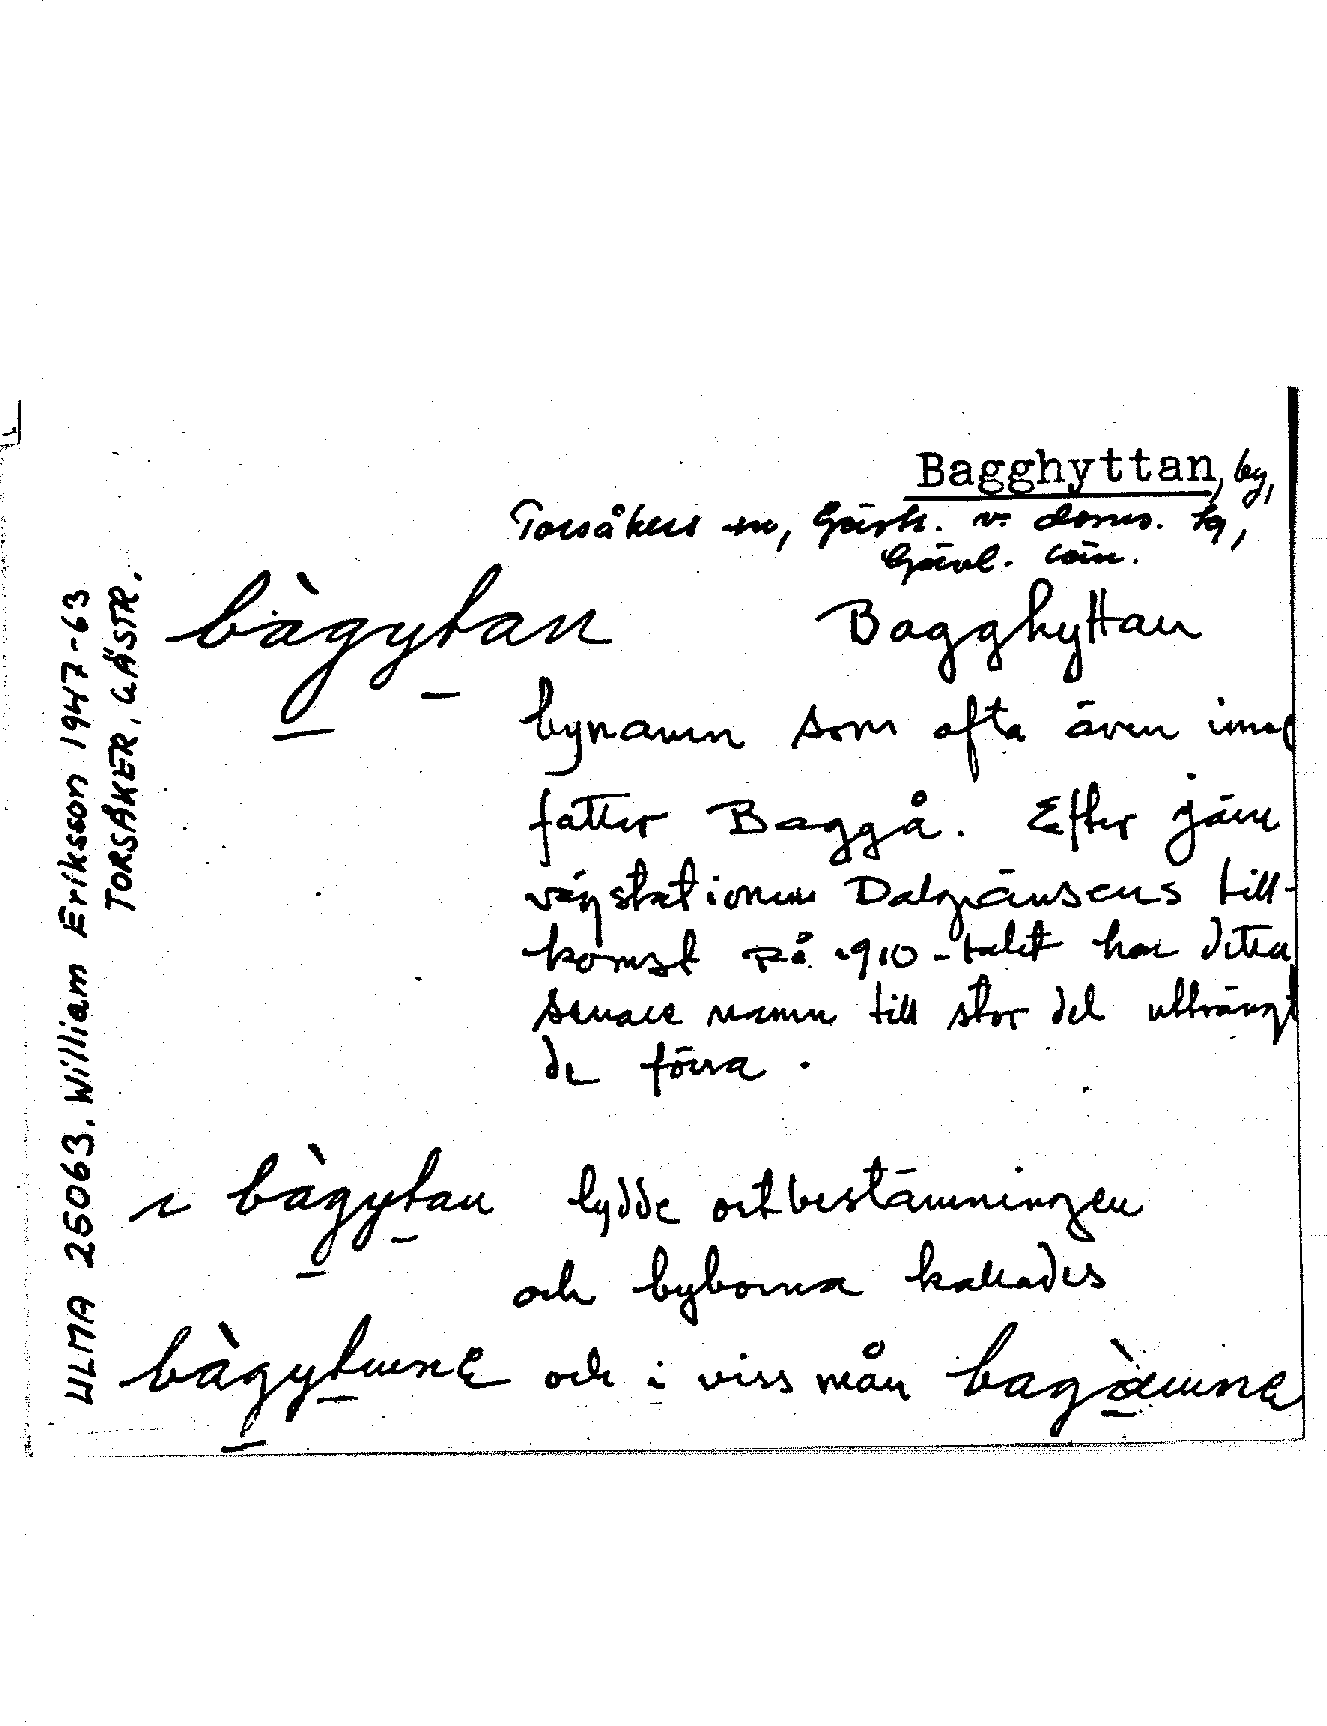 Bagghyttan, by,
Torsåkers sn, Gästr. v. doms. tg,
Gävl. län.
ULMA 25063. William Eriksson 1947-63
TORSÅKER, GÄSTR.
bàgytan Bagghyttan
bynamn som ofta även inne
fattar Baggå. Efter järn
vägstationen Dalgränsens till-
komst på 1910-talet har detta
senare namn till stor del utträngt
de förra.
i bàgytan lydde ortbestämningen
och byborna kallades
bàgytwɩnɛ och i viss mån bagàwɩnɛ